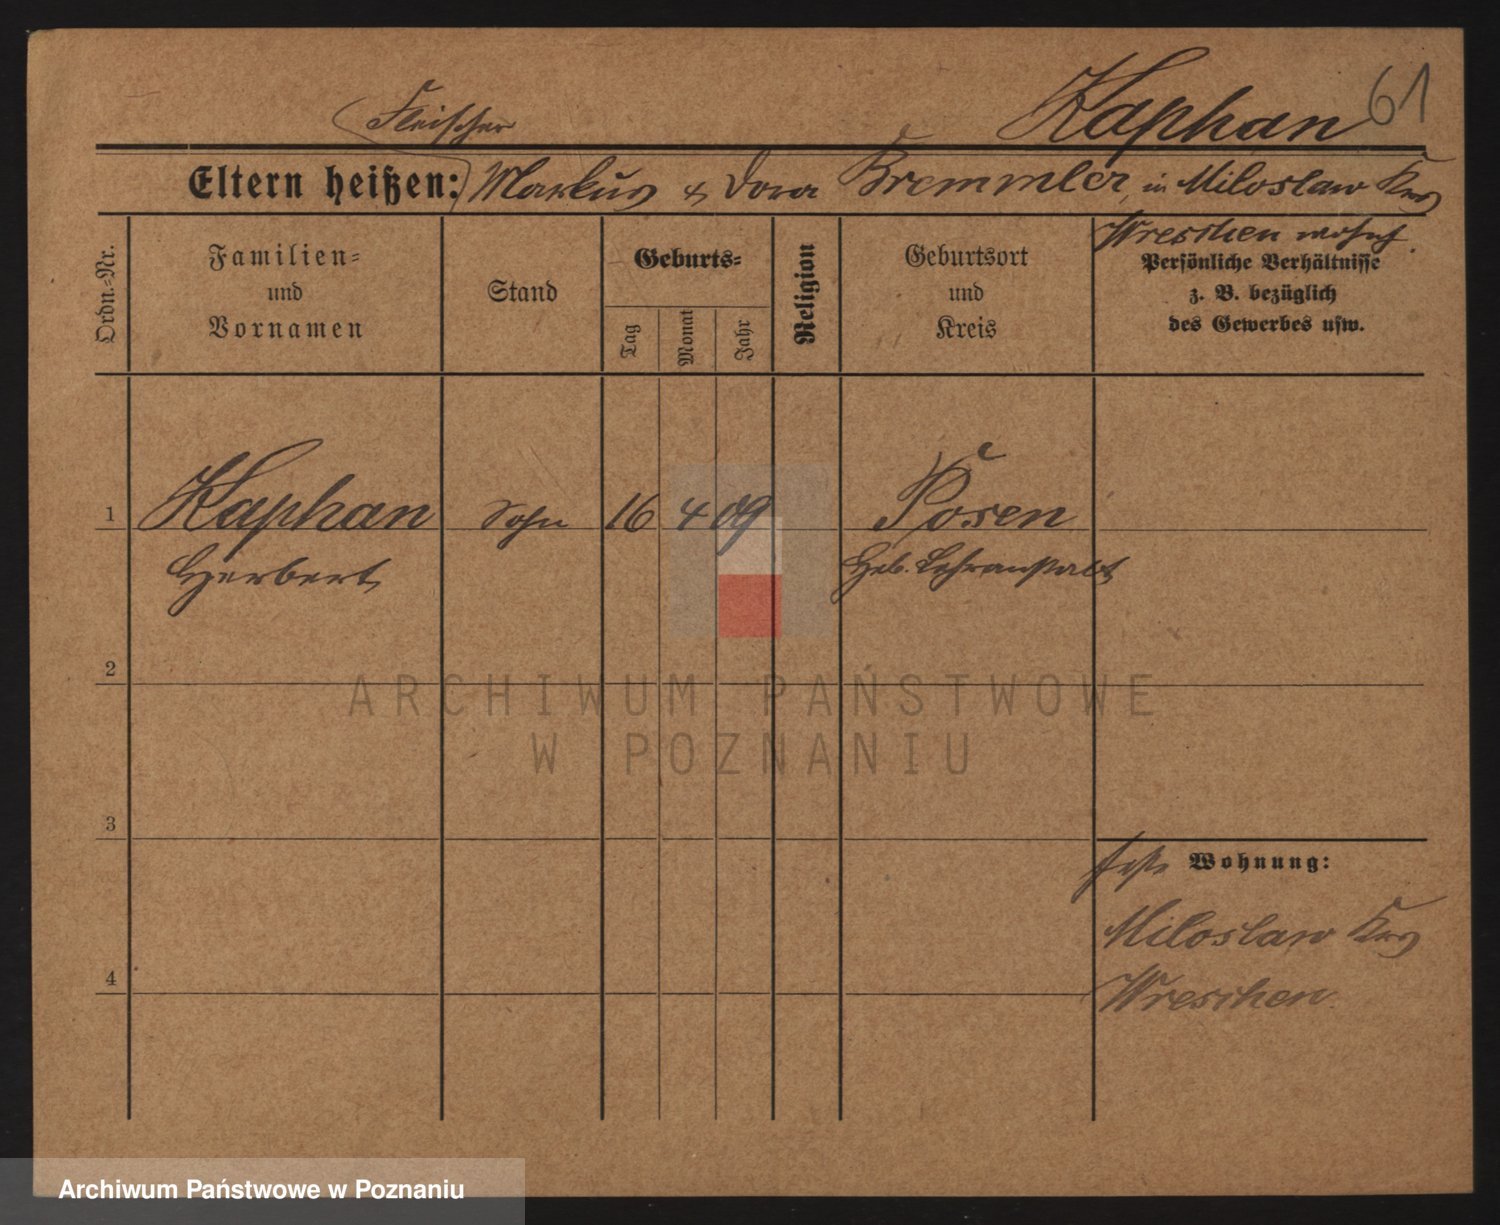 Kaphan 61
Fleischer
Eltern heißen: Markus & Dora Bremmler, in Miloslaw Krs
Wreschen wohnh.
Ordn.-Nr.
Familien-
und
Vornamen
Stand
Geburts-
Tag
Monat
Jahr
Religion
Geburtsort
und
Kreis
Persönliche Verhältnisse
z. B. bezüglich
des Gewerbes usw.
1 Kaphan Sohn 16 4 09 Posen
Herbert Heb. Lehranstalt
2
ARCHIWUM PAŃSTWOWE
W POZNANIU
3
feste Wohnung:
Miloslaw Krs
4 Wreschen
Archiwum Państwowe w Poznaniu